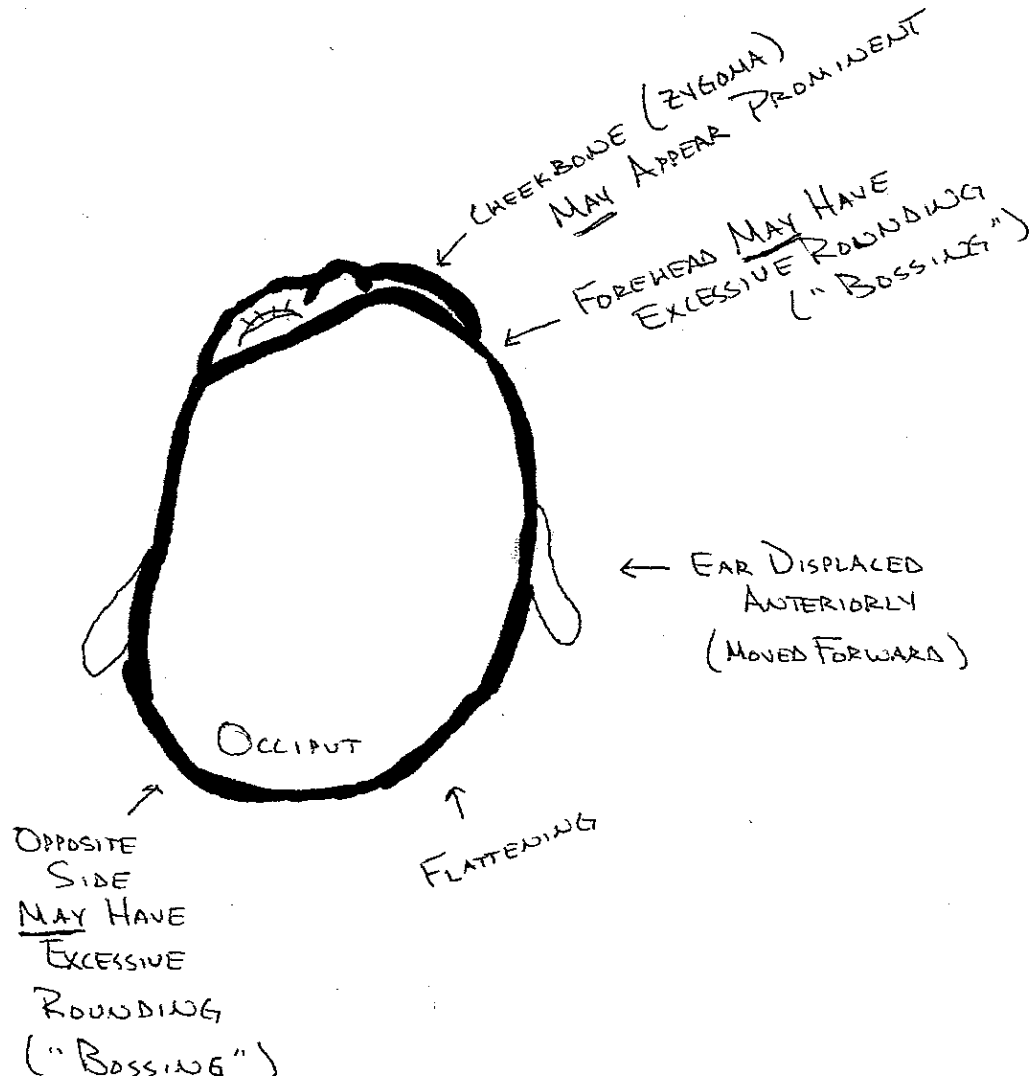 CHEEKBONE (ZYGOMA)
MAY APPEAR PROMINENT
FOREHEAD MAY HAVE
EXCESSIVE ROUNDING
("BOSSING")
EAR DISPLACED
ANTERIORLY
(MOVED FORWARD)
OCCIPUT
FLATTENING
OPPOSITE
SIDE
MAY HAVE
EXCESSIVE
ROUNDING
("BOSSING")